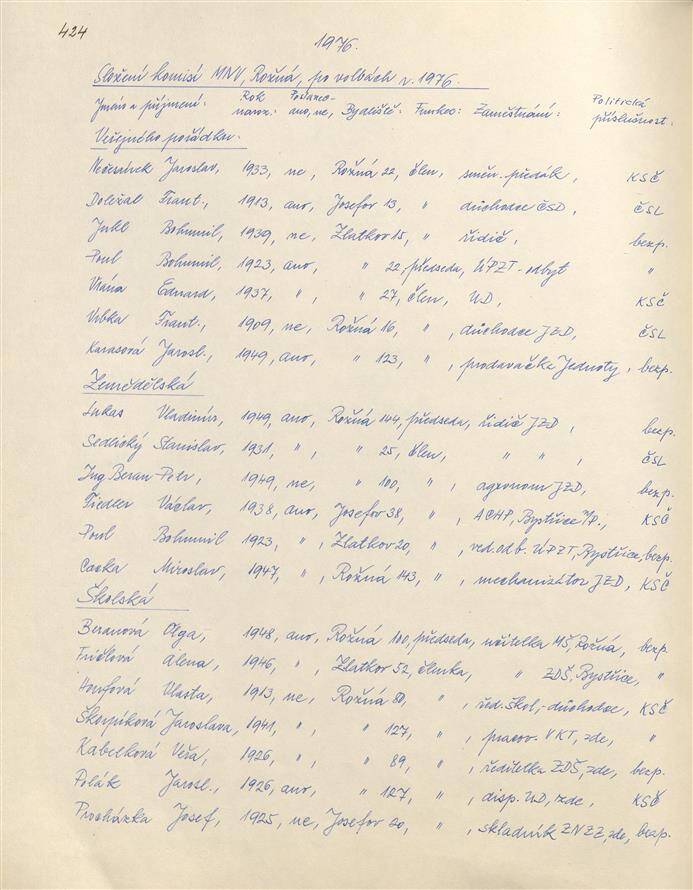 424
1976.
Složení komisí MNV, Rožná, po volbách r. 1976.
Jméno a příjmení: Rok naroz.: Poslanec- ano, ne, Bydliště: Funkce: Zaměstnání: Politická příslušnost:
Veřejného pořádku:
Jaroslav, 1933, ne, Rožná 22, člen, směn. předák, KSČ
Doležal Frant., 1913, ano, Josefov 13, " důchodce ČSD, ČSL
Jukl Bohumil, 1939, ne, Zlatkov 15, " řidič, bezp.
Poul Bohumil, 1923, ano, " 22, předseda, ÚPZT - odbyt "
Vrána Eduard, 1937, ", " 27, člen, UD, KSČ
Vrbka Frant., 1909, ne, Rožná 16, ", důchodce JZD, ČSL
Karasová Jarosl., 1949, ano, " 123, ", prodavačka Jednoty, bezp.
Zemědělská
Lukas Vladimír, 1949, ano, Rožná 144, předseda, řidič JZD, bezp.
Sedlický Stanislav, 1931, ", " 25, člen, " ", ČSL
Ing Beran Petr, 1949, ne, " 100, ", agronom JZD, bezp.
Fiedler Václav, 1938, ano, Josefov 38, ", ACHP, Bystřice n/P., KSČ
Poul Bohumil 1923, ", Zlatkov 20, ", ved. odb. ÚPZT, Bystřice, bezp.
Caska Miroslav, 1947, ", Rožná 143, ", mechanizátor JZD, KSČ
Školská
Beranová Olga, 1948, ano, Rožná 100, předseda, učitelka MŠ, Rožná, bezp.
Alena, 1946, ", Zlatkov 52, členka, " ZDŠ, Bystřice, "
Vlasta, 1913, ne, Rožná 80, ", řed. škol, - důchodce, KSČ
Škorpíková Jaroslava, 1941, ", " 127, ", pracov. VKT, zde, "
Kabelková Věra, 1926, ", " 89, ", ředitelka ZDŠ, zde, bezp.
Polák Jarosl., 1926, ano, " 127, ", disp. UD, zde, KSČ
Procházka Josef, 1925, ne, Josefov 20, ", skladník ZNZZ, zde, bezp.